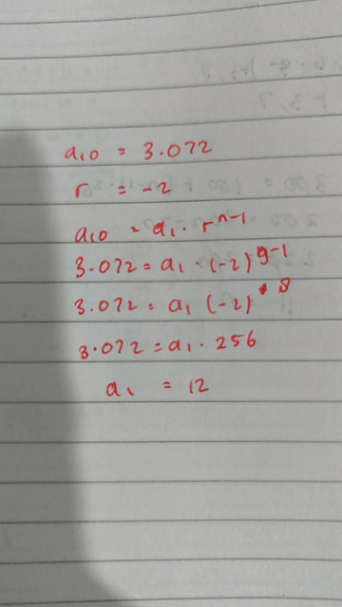 a₁₀ = 3.072
r = -2
a₁₀ = a₁ · rⁿ⁻¹
3.072 = a₁ · (-2)⁹⁻¹
3.072 = a₁ (-2)⁸
3.072 = a₁ · 256
a₁ = 12